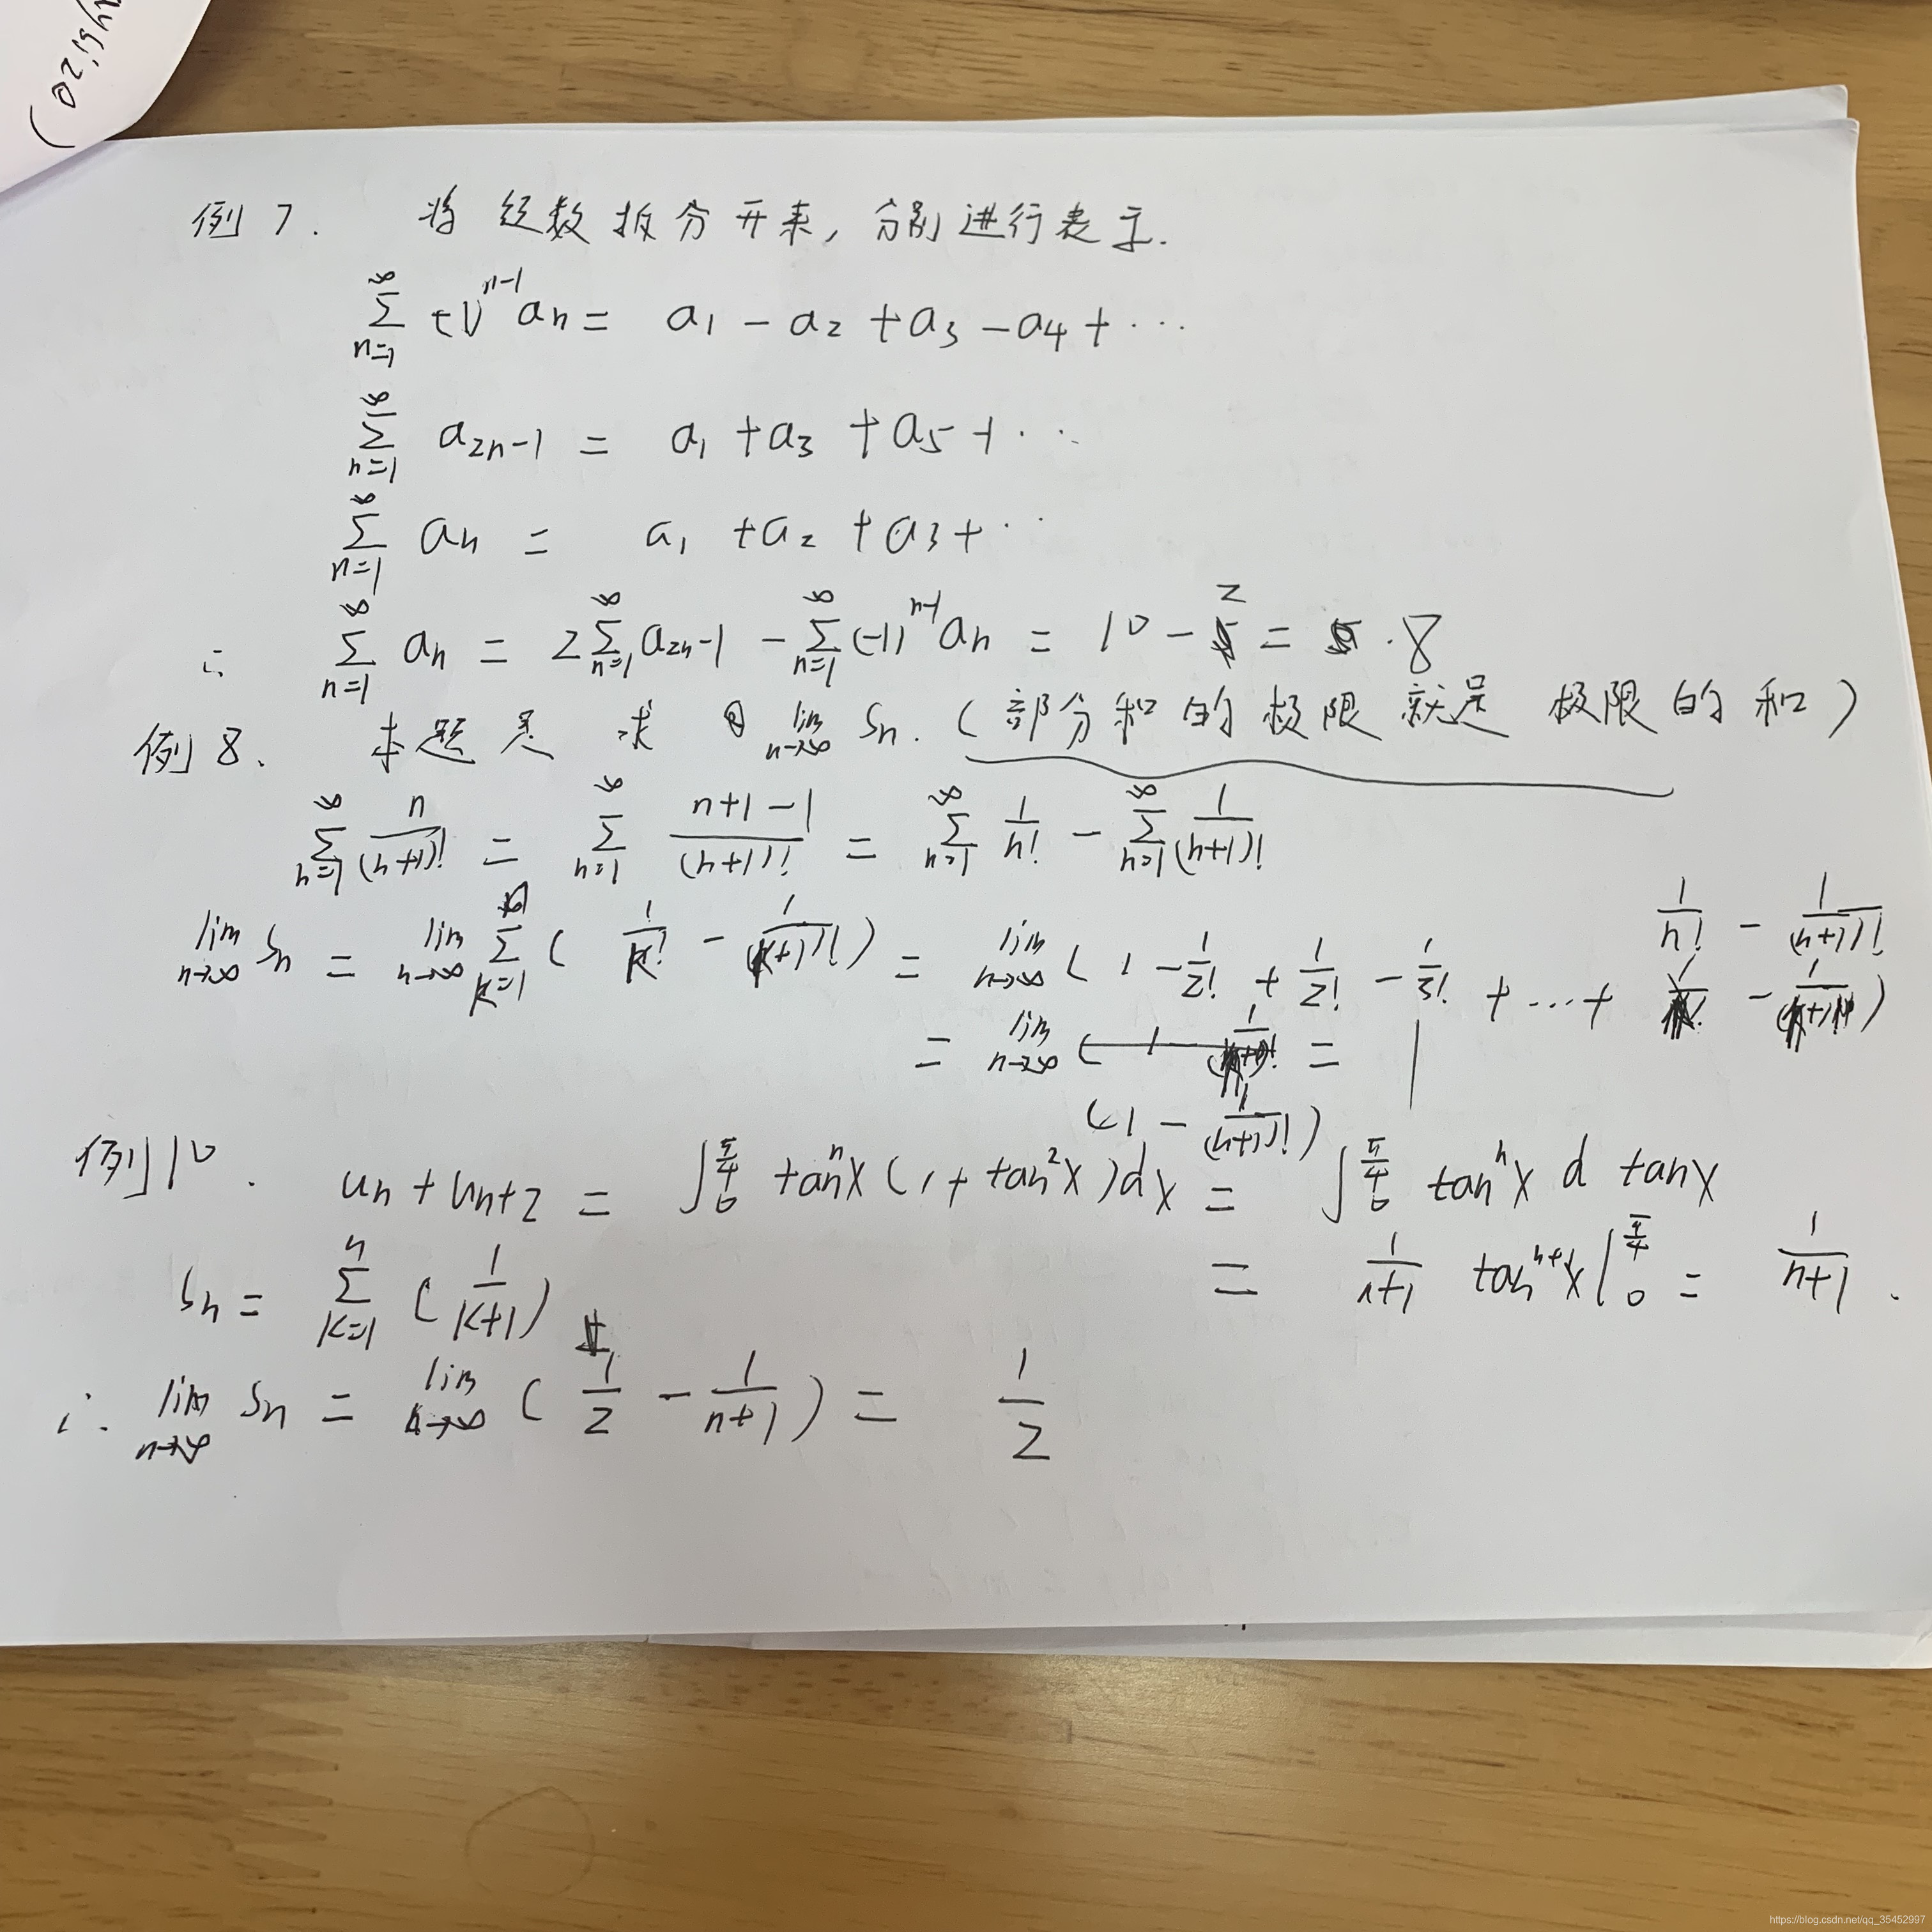 例7. 将级数拆分开来,分别进行表示.
∑_{n=1}^{∞} (-1)^{n-1} a_n = a_1 - a_2 + a_3 - a_4 + ···
∑_{n=1}^{∞} a_{2n-1} = a_1 + a_3 + a_5 + ···
∑_{n=1}^{∞} a_n = a_1 + a_2 + a_3 + ···
∴ ∑_{n=1}^{∞} a_n = 2∑_{n=1}^{∞} a_{2n-1} - ∑_{n=1}^{∞} (-1)^{n-1} a_n = 10 - 2 = 8
例8. 本题是 求 lim_{n→∞} S_n. (部分和的极限就是 极限的和)
∑_{n=1}^{∞} n/(n+1)! = ∑_{n=1}^{∞} (n+1-1)/(n+1)! = ∑_{n=1}^{∞} 1/n! - ∑_{n=1}^{∞} 1/(n+1)!
lim_{n→∞} S_n = lim_{n→∞} ∑_{k=1} ( 1/k! - 1/(k+1)! ) = lim_{n→∞} ( 1 - 1/2! + 1/2! - 1/3! + ... + 1/n! - 1/(n+1)! )
= lim_{n→∞} (1 - 1/(n+1)!) = 1
例10. u_n + u_{n+2} = ∫_0^{π/4} tan^n x (1 + tan^2 x) dx = ∫_0^{π/4} tan^n x d tan x
= 1/(n+1) tan^{n+1} x |_0^{π/4} = 1/(n+1).
S_n = ∑_{k=1}^{n} ( 1/(k+1) )
∴ lim_{n→∞} S_n = lim_{n→∞} ( 1/2 - 1/(n+1) ) = 1/2
https://blog.csdn.net/qq_35452997